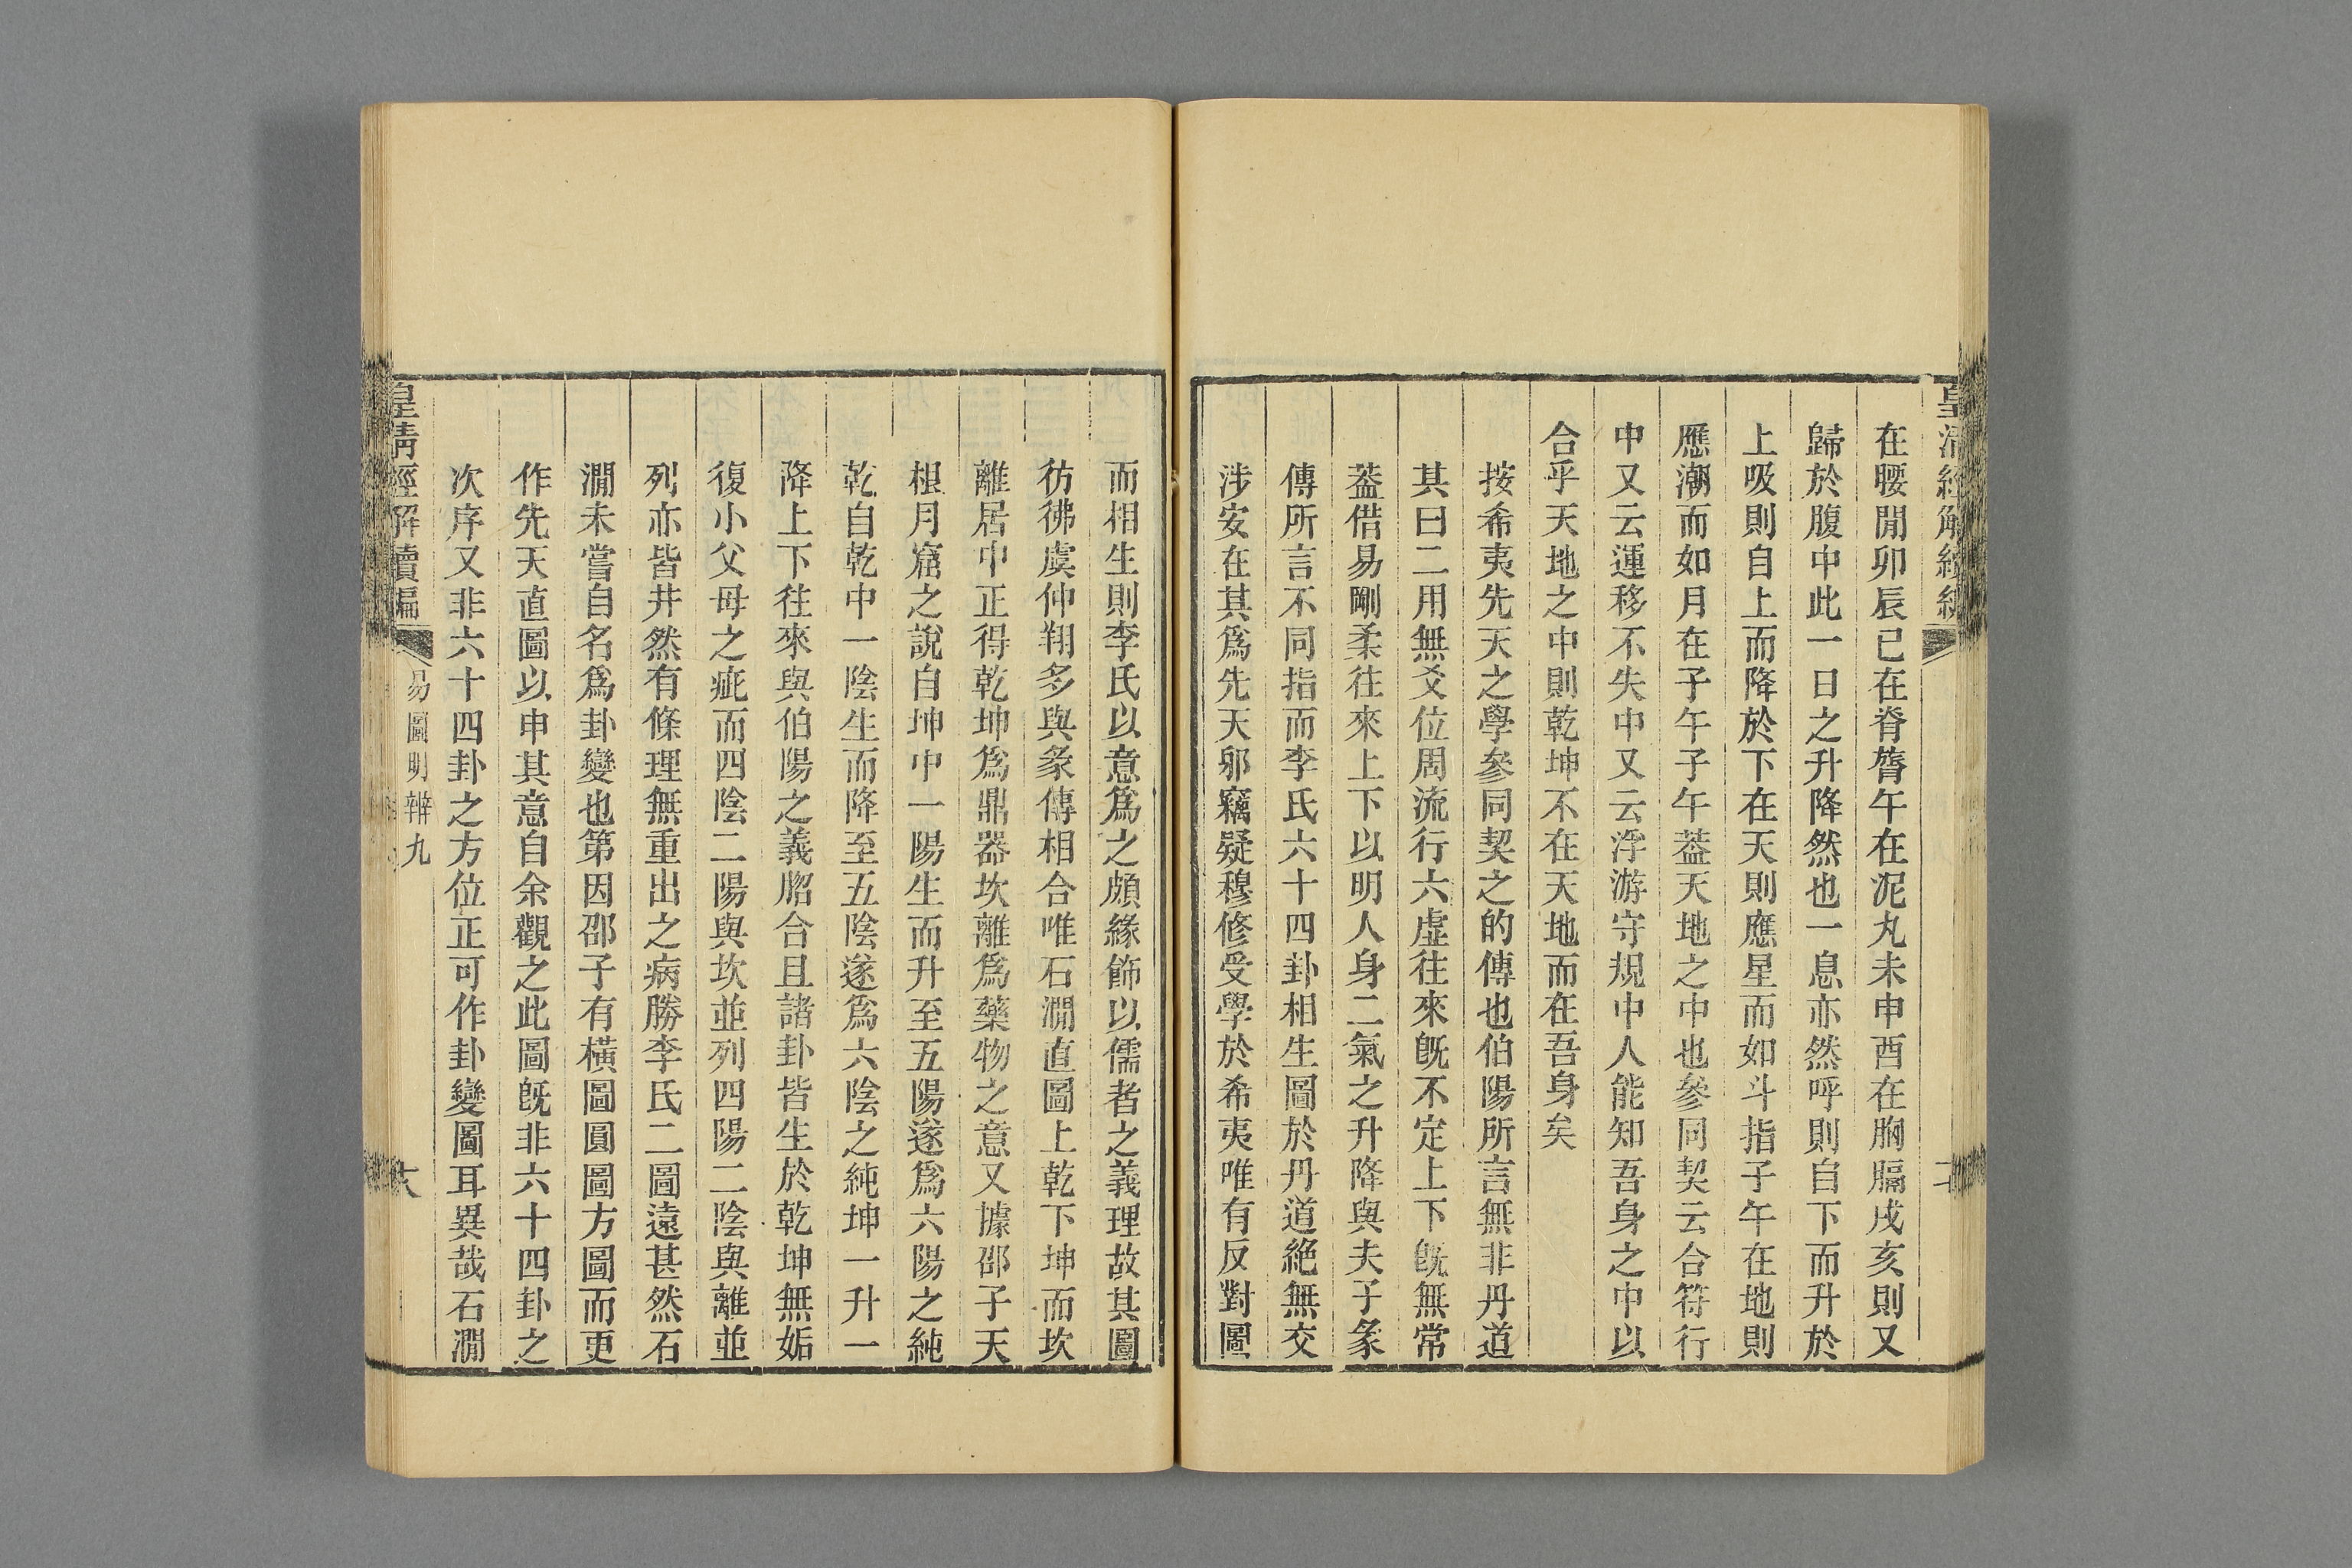 皇清經解續編
在腰閒卯辰巳在脊膂午在泥丸未申酉在胸膈戌亥則又
歸於腹中此一日之升降然也一息亦然呼則自下而升於
上吸則自上而降於下在天則應星而如斗指子午在地則
應潮而如月在子午子午葢天地之中也參同契云合符行
中又云運移不失中又云浮游守規中人能知吾身之中以
合乎天地之中則乾坤不在天地而在吾身矣
按希夷先天之學參同契之的傳也伯陽所言無非丹道
其曰二用無爻位周流行六虛往來旣不定上下旣無常
葢借易剛柔往來上下以明人身二氣之升降與夫子彖
傳所言不同指而李氏六十四卦相生圖於丹道絶無交
涉安在其爲先天邪竊疑穆修受學於希夷唯有反對圖
而相生則李氏以意爲之頗緣飾以儒者之義理故其圖
彷彿虞仲翔多與彖傳相合唯石澗直圖上乾下坤而坎
離居中正得乾坤爲鼎器坎離爲藥物之意又據邵子天
根月窟之說自坤中一陽生而升至五陽遂爲六陽之純
乾自乾中一陰生而降至五陰遂爲六陰之純坤一升一
降上下往來與伯陽之義脗合且諸卦皆生於乾坤無姤
復小父母之疵而四陰二陽與坎並列四陽二陰與離並
列亦皆井然有條理無重出之病勝李氏二圖遠甚然石
澗未嘗自名爲卦變也第因邵子有橫圖圓圖方圖而更
作先天直圖以申其意自余觀之此圖旣非六十四卦之
次序又非六十四卦之方位正可作卦變圖耳異哉石澗
皇清經解續編
易圖明辨九